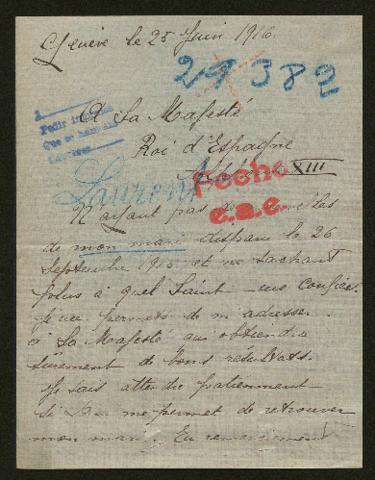 Genève le 25 Juin 1916.
29382
A Sa Majesté
Pedir
Que se
Roi d'Espagne
XIII
Laurent
Fecho
e.a.e.
N'ayant pas de
de mon mari disparu le 26
Septembre 1915 et ne sachant
plus à quel Saint me confier
je me permets de m'adresser
à Sa Majesté qui obtiendra
surement de bons résultats.
Je sais attendre patiemment
si Dieu me permet de retrouver
mon mari. En remerciement